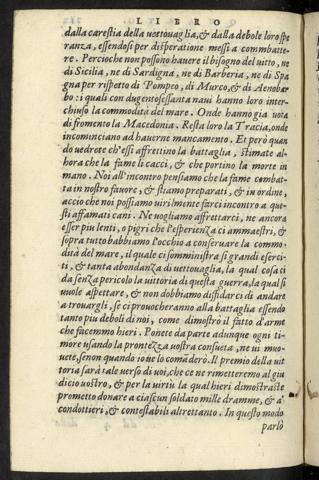 LIBRO
dalla carestia della vettouaglia, & dalla debole loro spe
ranza, essendosi per disperatione messi a commbatte-
re. Percioche non possono hauere il bisogno del uitto, ne
di Sicilia, ne di Sardigna, ne di Barberia, ne di Spa
gna per rispetto di Pompeo, di Murco, & di Aenobar
bo: i quali con dugentosessanta naui hanno loro inter-
chiuso la commodità del mare. Onde hanno gia uota
di fromento la Macedonia. Resta loro la Tracia, onde
incominciano ad hauerne mancamento. Et però quan
do uedrete ch'essi affrettino la battaglia, stimate al-
hora che la fame li cacci, & che portino la morte in
mano. Noi all'incontro pensiamo che la fame combat-
ta in nostro fauore, & stiamo preparati, & in ordine,
accio che noi possiamo uirilmente farci incontro a que-
sti affamati cani. Ne uogliamo affrettarci, ne ancora
esser piu lenti, o pigri che l'esperienza ci ammaestri, &
sopra tutto habbiamo l'occhio a conseruare la commo-
dità del mare, il quale ci somministra si grandi eserci-
ti, & tanta abondanza di uettouaglia, la qual cosa ci
da senza pericolo la uittoria di questa guerra, la qual si
uuole aspettare, & non dobbiamo diffidarci di andare
a trouargli, se ci prouocheranno alla battaglia essendo
tanto piu deboli di noi, come dimostrò il fatto d'arme
che facemmo hieri. Ponete da parte adunque ogni ti-
more usando la prontezza uostra consueta, ne ui muo-
uete, se non quando io ue lo comãderò. Il premio della uit
toria sarà tale uerso di uoi, che ce ne rimetteremo al giu
dicio uostro, & per la uirtù la qual hieri dimostraste
prometto donare a ciascun soldato mille dramme, & a'
condottieri, & contestabili altrettanto. In questo modo
parlò